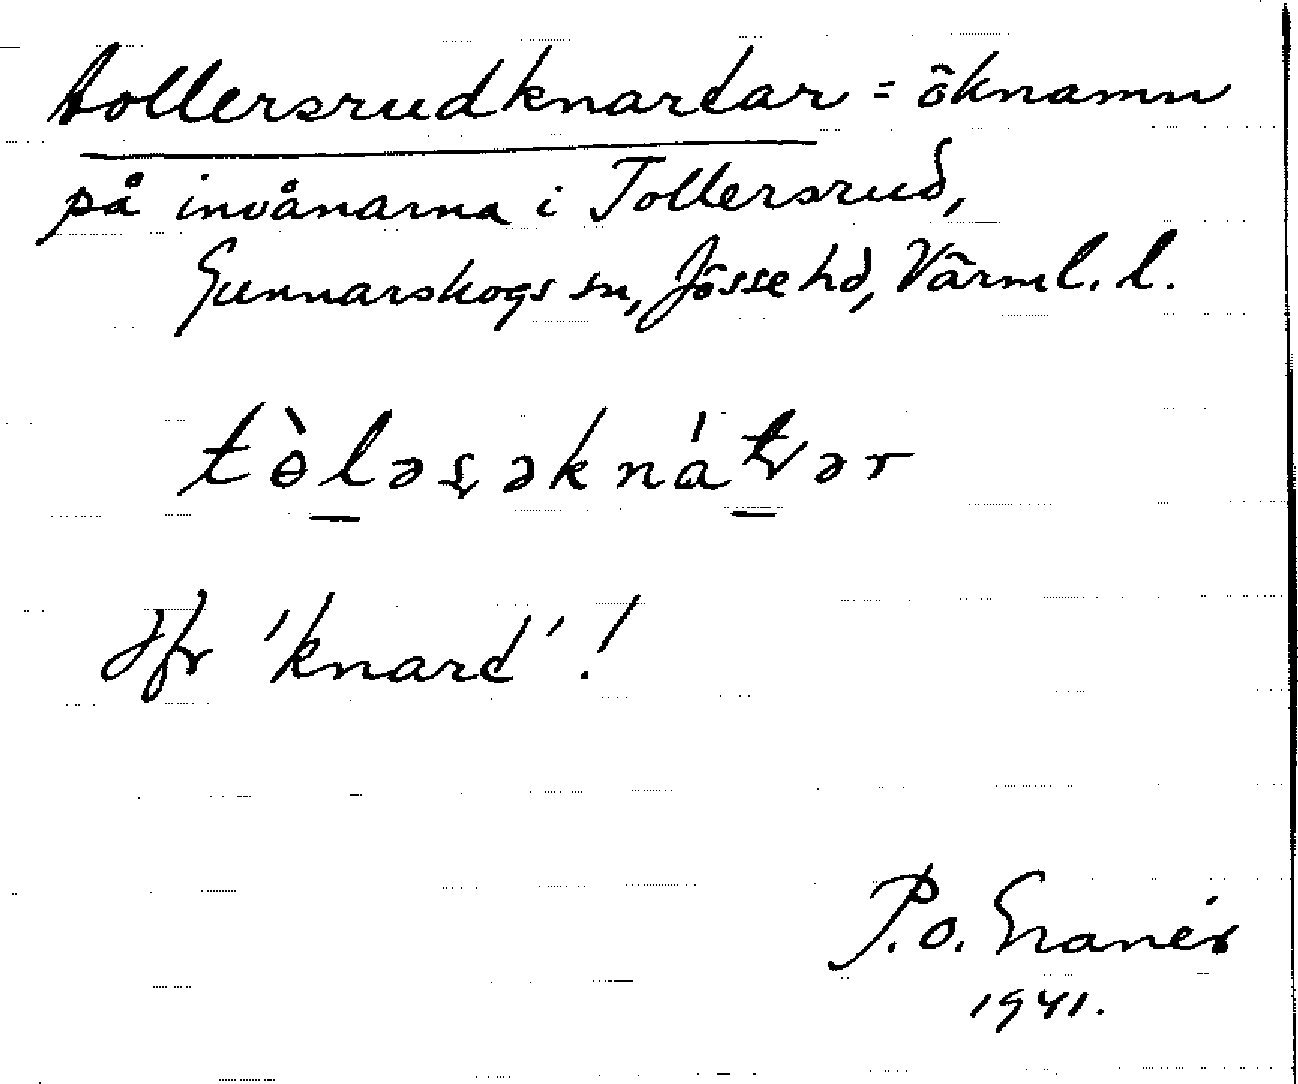 tollersrudknardar = öknamn
på invånarna i Tollersrud,
Gunnarskogs sn, Jösse hd, Värml. l.
Jfr 'knard'!
P.O.
1941.